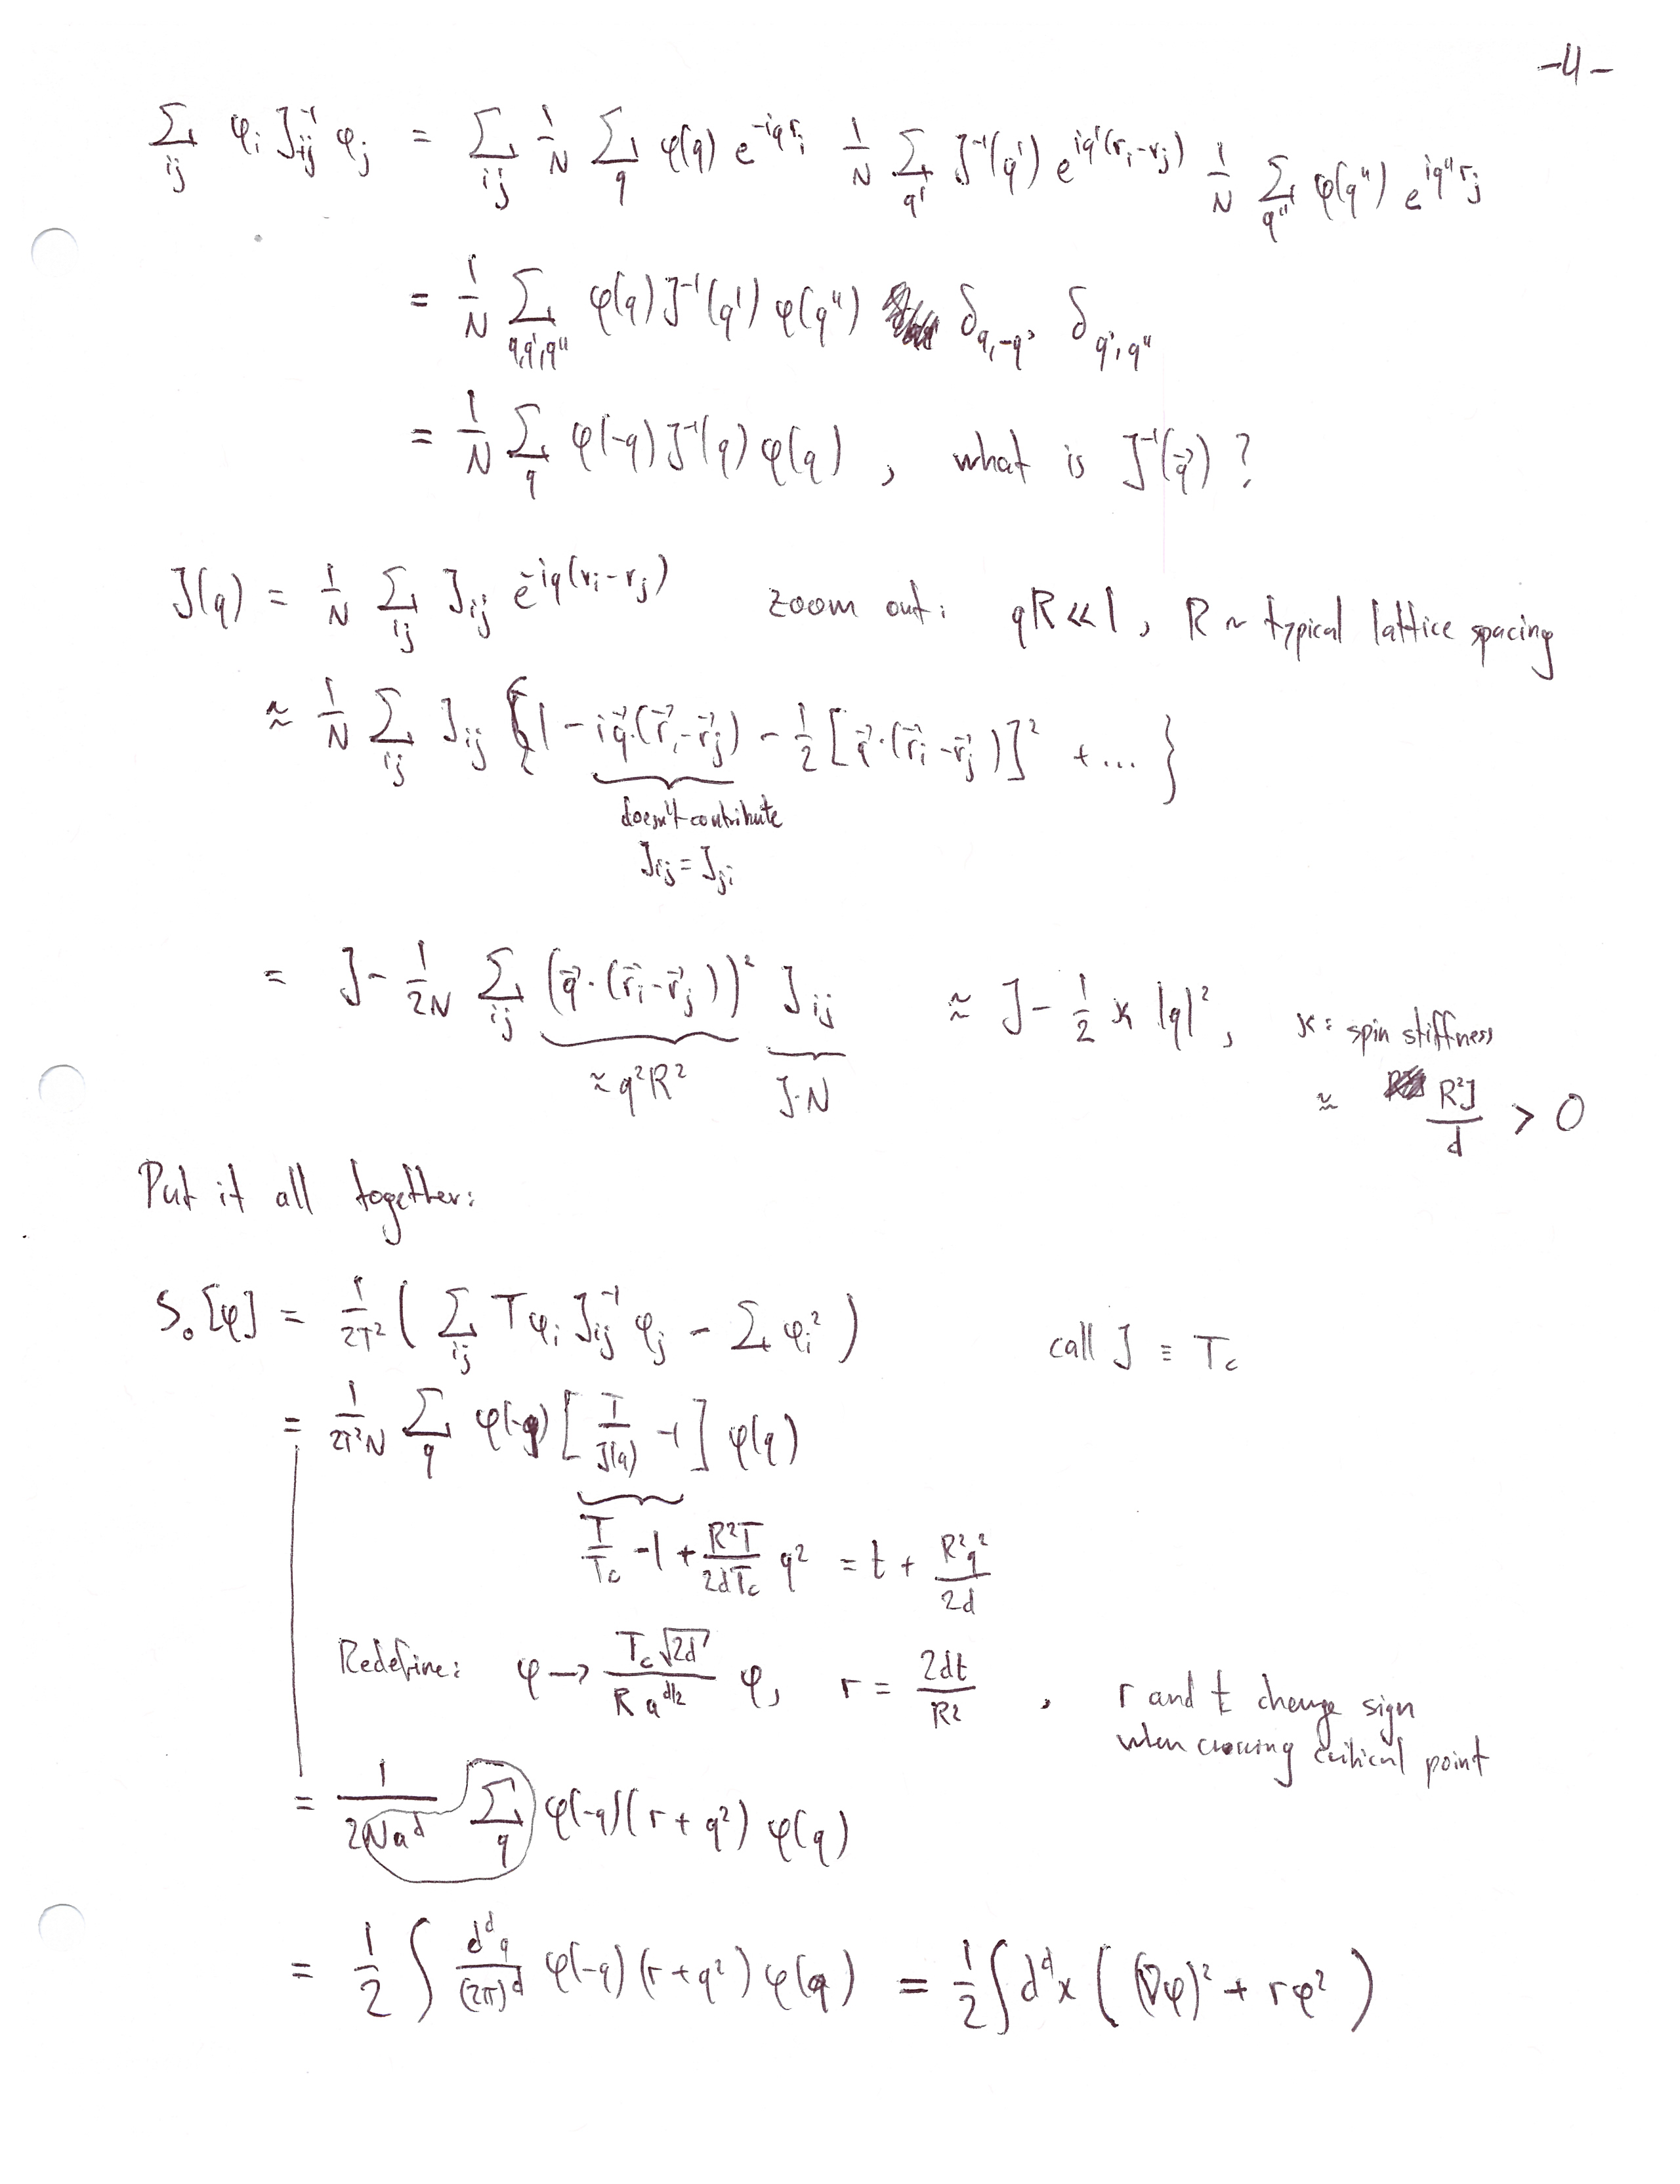 -4-
∑_{ij} φ_i J^{-1}_{ij} φ_j = ∑_{ij} 1/N ∑_q φ(q) e^{-iqr_i} 1/N ∑_{q'} J^{-1}(q') e^{iq'(r_i-r_j)} 1/N ∑_{q''} φ(q'') e^{iq''r_j}
= 1/N ∑_{q,q',q''} φ(q) J^{-1}(q') φ(q'') δ_{q,-q'} δ_{q',q''}
= 1/N ∑_q φ(-q) J^{-1}(q) φ(q) , what is J^{-1}(q⃗) ?
J(q) = 1/N ∑_{ij} J_{ij} e^{-iq(r_i-r_j)} zoom out: qR ≪ 1, R ~ typical lattice spacing
≈ 1/N ∑_{ij} J_{ij} {1 - iq⃗·(r⃗_i-r⃗_j) - 1/2 [q⃗·(r⃗_i-r⃗_j)]² + ... }
doesn't contribute
J_{ij} = J_{ji}
= J - 1/2N ∑_{ij} (q⃗·(r⃗_i-r⃗_j))² J_{ij} ≈ J - 1/2 κ |q|², κ: spin stiffness
≈ q²R² J·N ≈ R²J/d > 0
Put it all together:
S_0[φ] = 1/2T² ( ∑_{ij} T φ_i J^{-1}_{ij} φ_j - ∑ φ_i² ) call J ≡ T_c
= 1/2T²N ∑_q φ(-q) [ T/J(q) - 1 ] φ(q)
T/T_c - 1 + R²T/2dT_c q² = t + R²q²/2d
Redefine: φ → T_c√2d / R a^{d/2} φ, r = 2dt/R² , r and t change sign
when crossing critical point
= 1/2Na^d ∑_q φ(-q)(r + q²) φ(q)
= 1/2 ∫ d^dq/(2π)^d φ(-q) (r + q²) φ(q) = 1/2 ∫ d^dx ( (∇φ)² + rφ² )